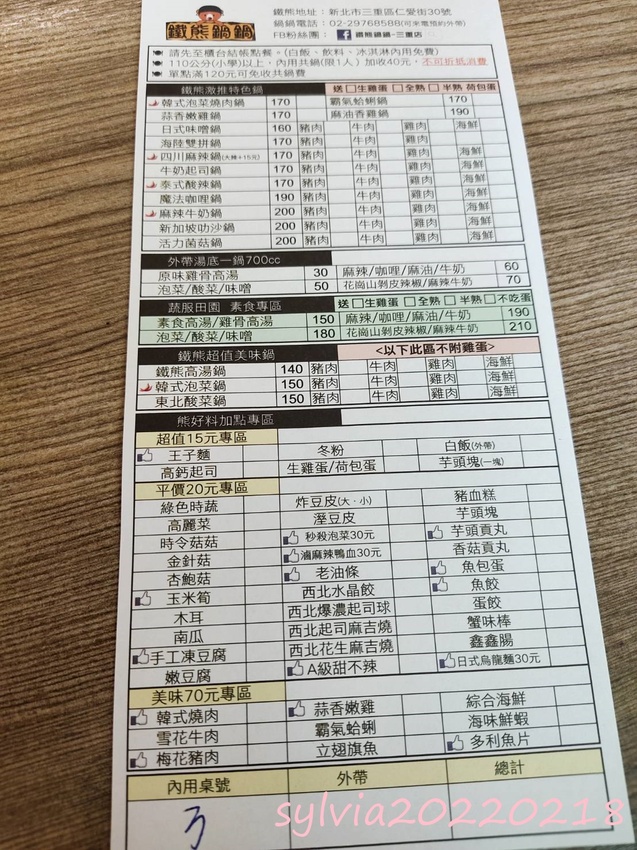 鐵熊鍋鍋
鐵熊地址：新北市三重區仁愛街30號
鍋鍋電話：02-29768588(可來電預約外帶)
FB粉絲團： 鐵熊鍋鍋-三重店
請先至櫃台結帳點餐。(白飯、飲料、冰淇淋內用免費)
110公分(小學)以上，內用共鍋(限1人) 加收40元，不可折抵消費
單點滿120元可免收共鍋費
鐵熊激推特色鍋 送 □生雞蛋 □全熟 □半熟 荷包蛋
韓式泡菜燒肉鍋 170 霸氣蛤蜊鍋 170
蒜香嫩雞鍋 170 麻油香雞鍋 190
日式味噌鍋 160 豬肉 牛肉 雞肉 海鮮
海陸雙拼鍋 170
四川麻辣鍋(大辣+15元) 170 豬肉 牛肉 雞肉 海鮮
牛奶起司鍋 170 豬肉 牛肉 雞肉 海鮮
泰式酸辣鍋 170 豬肉 牛肉 雞肉 海鮮
魔法咖哩鍋 190 豬肉 牛肉 雞肉 海鮮
麻辣牛奶鍋 200 豬肉 牛肉 雞肉 海鮮
新加坡叻沙鍋 200 豬肉 牛肉 雞肉 海鮮
活力菌菇鍋 200 豬肉 牛肉 雞肉 海鮮
外帶湯底一鍋700cc
原味雞骨高湯 30 麻辣/咖哩/麻油/牛奶 60
泡菜/酸菜/味噌 50 花崗山剝皮辣椒/麻辣牛奶 70
蔬服田園 素食專區 送 □生雞蛋 □全熟 □半熟 □不吃蛋
素食高湯/雞骨高湯 150 麻辣/咖哩/麻油/牛奶 190
泡菜/酸菜/味噌 180 花崗山剝皮辣椒/麻辣牛奶 210
鐵熊超值美味鍋 <以下此區不附雞蛋>
鐵熊高湯鍋 140 豬肉 牛肉 雞肉 海鮮
韓式泡菜鍋 150 豬肉 牛肉 雞肉 海鮮
東北酸菜鍋 150 豬肉 牛肉 雞肉 海鮮
熊好料加點專區
超值15元專區
王子麵 冬粉 白飯(外帶)
高鈣起司 生雞蛋/荷包蛋 芋頭塊(一塊)
平價20元專區
綠色時蔬 炸豆皮(大‧小) 豬血糕
高麗菜 溼豆皮 芋頭塊
時令菇菇 秒殺泡菜30元 芋頭貢丸
金針菇 滷麻辣鴨血30元 香菇貢丸
杏鮑菇 老油條 魚包蛋
玉米筍 西北水晶餃 魚餃
木耳 西北爆濃起司球 蛋餃
南瓜 西北起司麻吉燒 蟹味棒
手工凍豆腐 西北花生麻吉燒 鑫鑫腸
嫩豆腐 A級甜不辣 日式烏龍麵30元
美味70元專區
韓式燒肉 蒜香嫩雞 綜合海鮮
雪花牛肉 霸氣蛤蜊 海味鮮蝦
梅花豬肉 立翅旗魚 多利魚片
內用桌號 外帶 總計
sylvia20220218